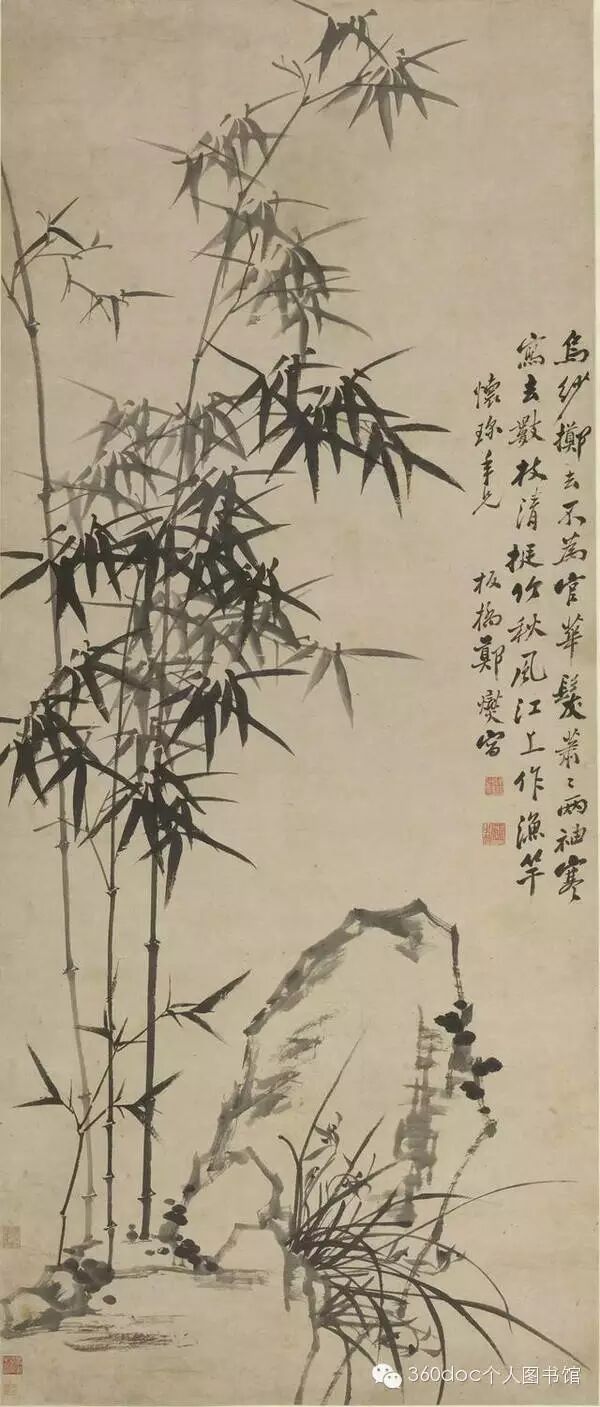 烏紗擲去不為官華髮蕭〻兩袖寒
寫去數枝清挺竹秋風江上作漁竿
懷年兄
板橋鄭燮寫
360doc个人图书馆